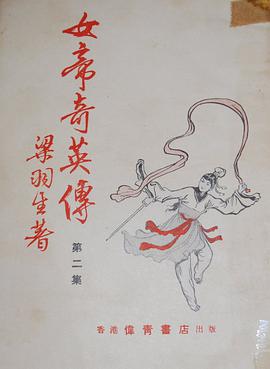 女帝奇英傳
梁羽生著
第二集
香港偉青書店出版